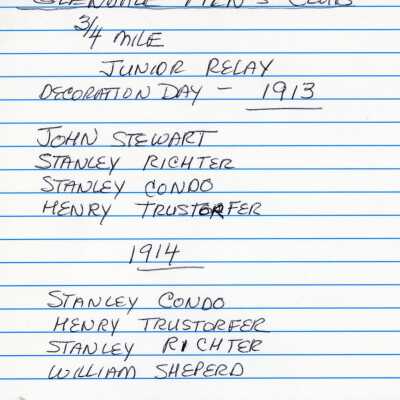 GLENDALE MEN'S CLUBS
3/4 MILE
JUNIOR RELAY
DECORATION DAY - 1913
JOHN STEWART
STANLEY RICHTER
STANLEY CONDO
HENRY TRUSTORFER
1914
STANLEY CONDO
HENRY TRUSTORFER
STANLEY RICHTER
WILLIAM SHEPERD